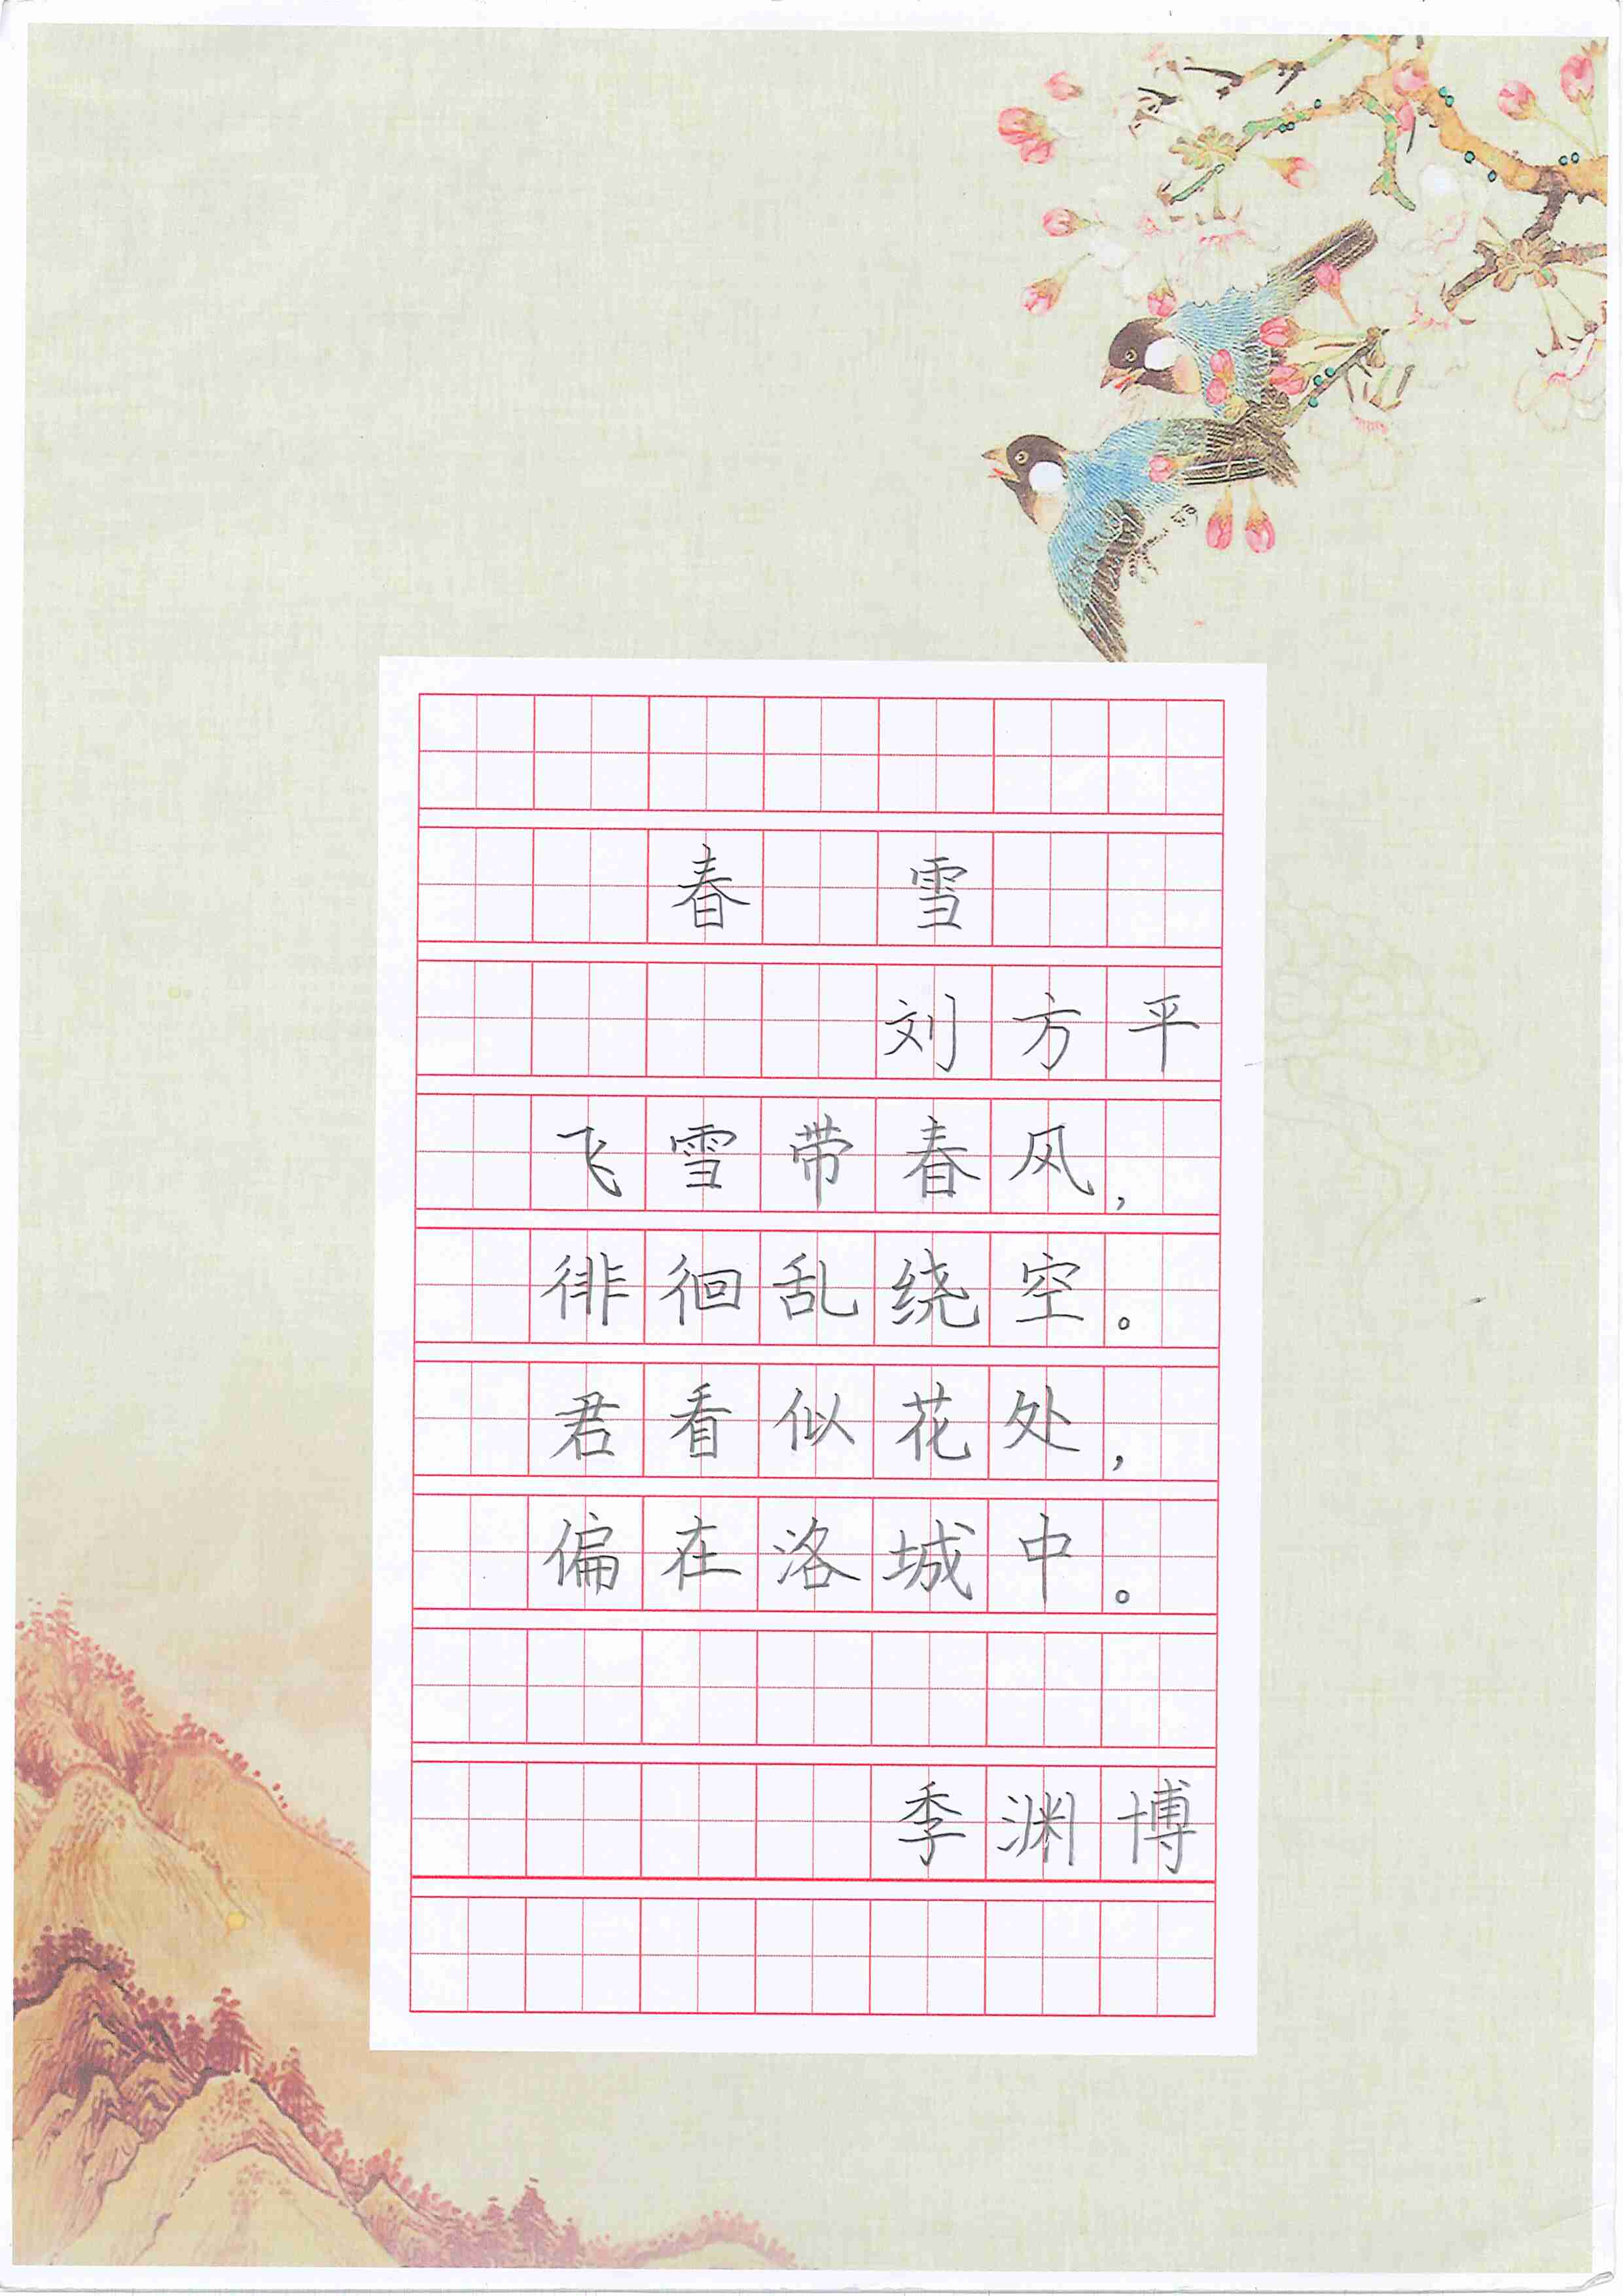 春 雪
刘方平
飞雪带春风，
徘徊乱绕空。
君看似花处，
偏在洛城中。
季渊博